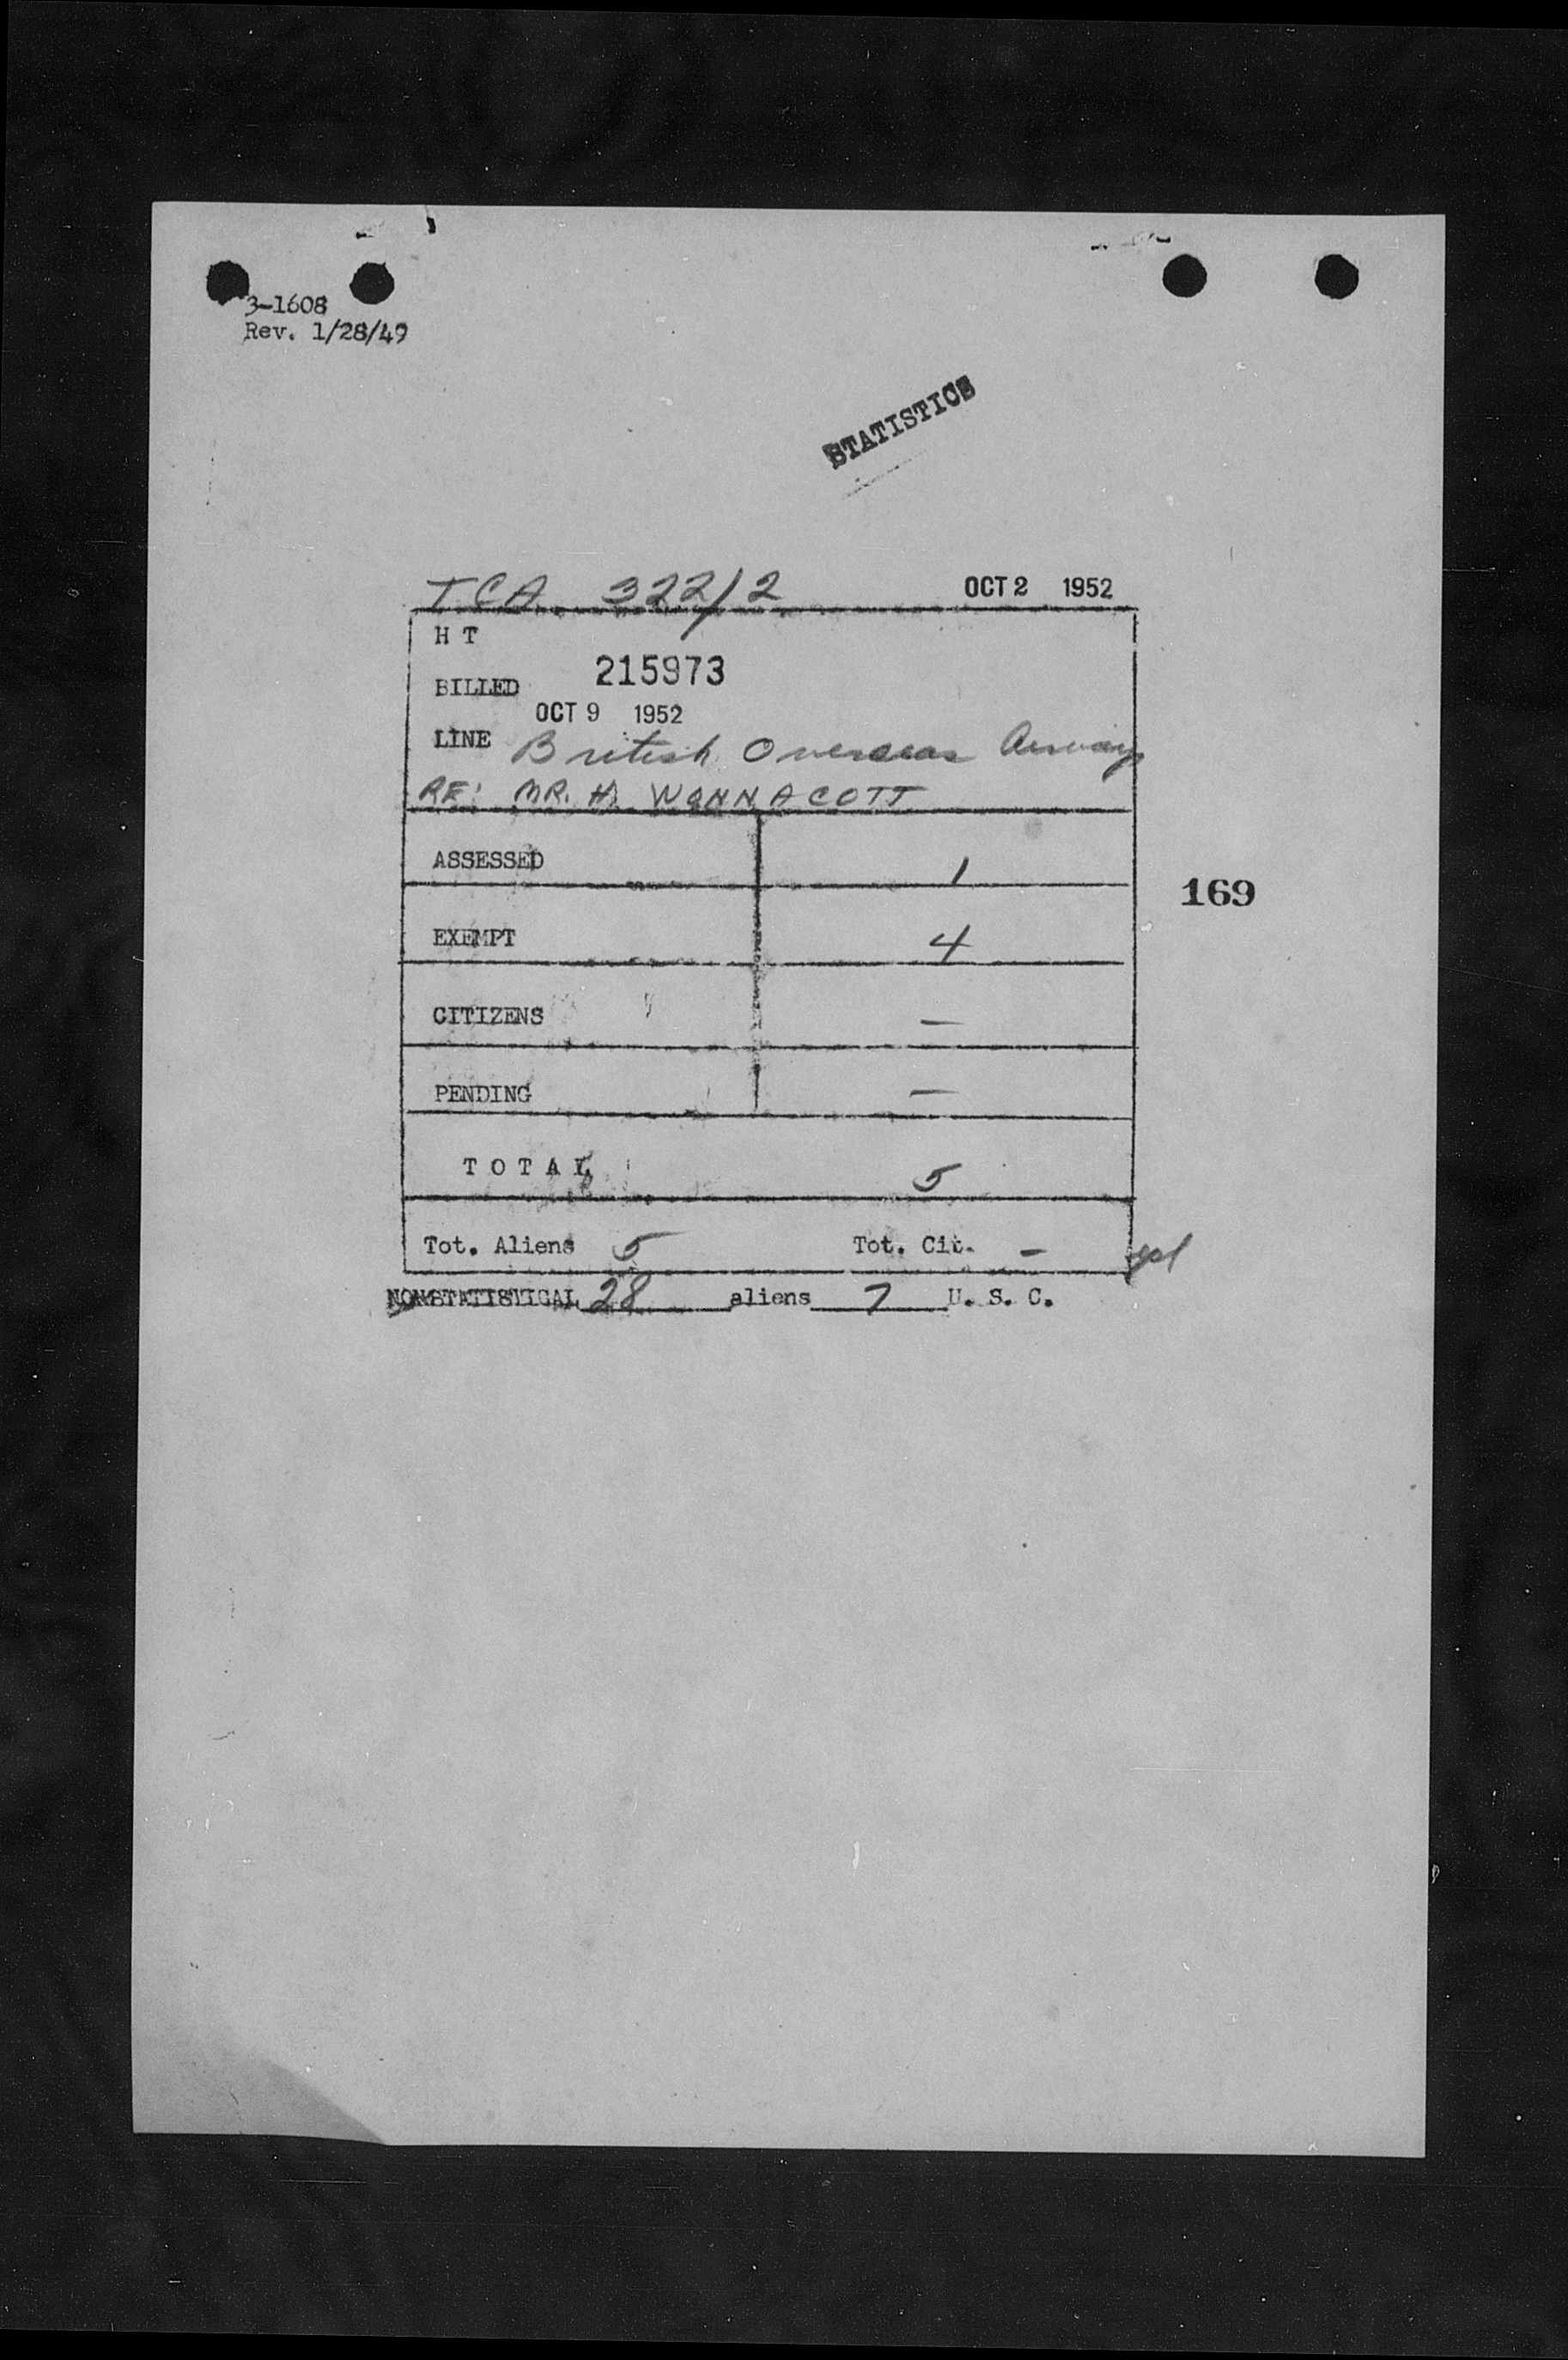 3-1608
Rev. 1/28/49
STATISTICS
TCA 322/2 OCT 2 1952
H T
BILLED 215973
OCT 9 1952
LINE British Overseas Airways
RE: MR. H. WONNACOTT
ASSESSED 1
169
EXEMPT 4
CITIZENS —
PENDING —
TOTAL 5
Tot. Aliens 5 Tot. Cit. -
NON-STATISTICAL 28 aliens 7 U. S. C.